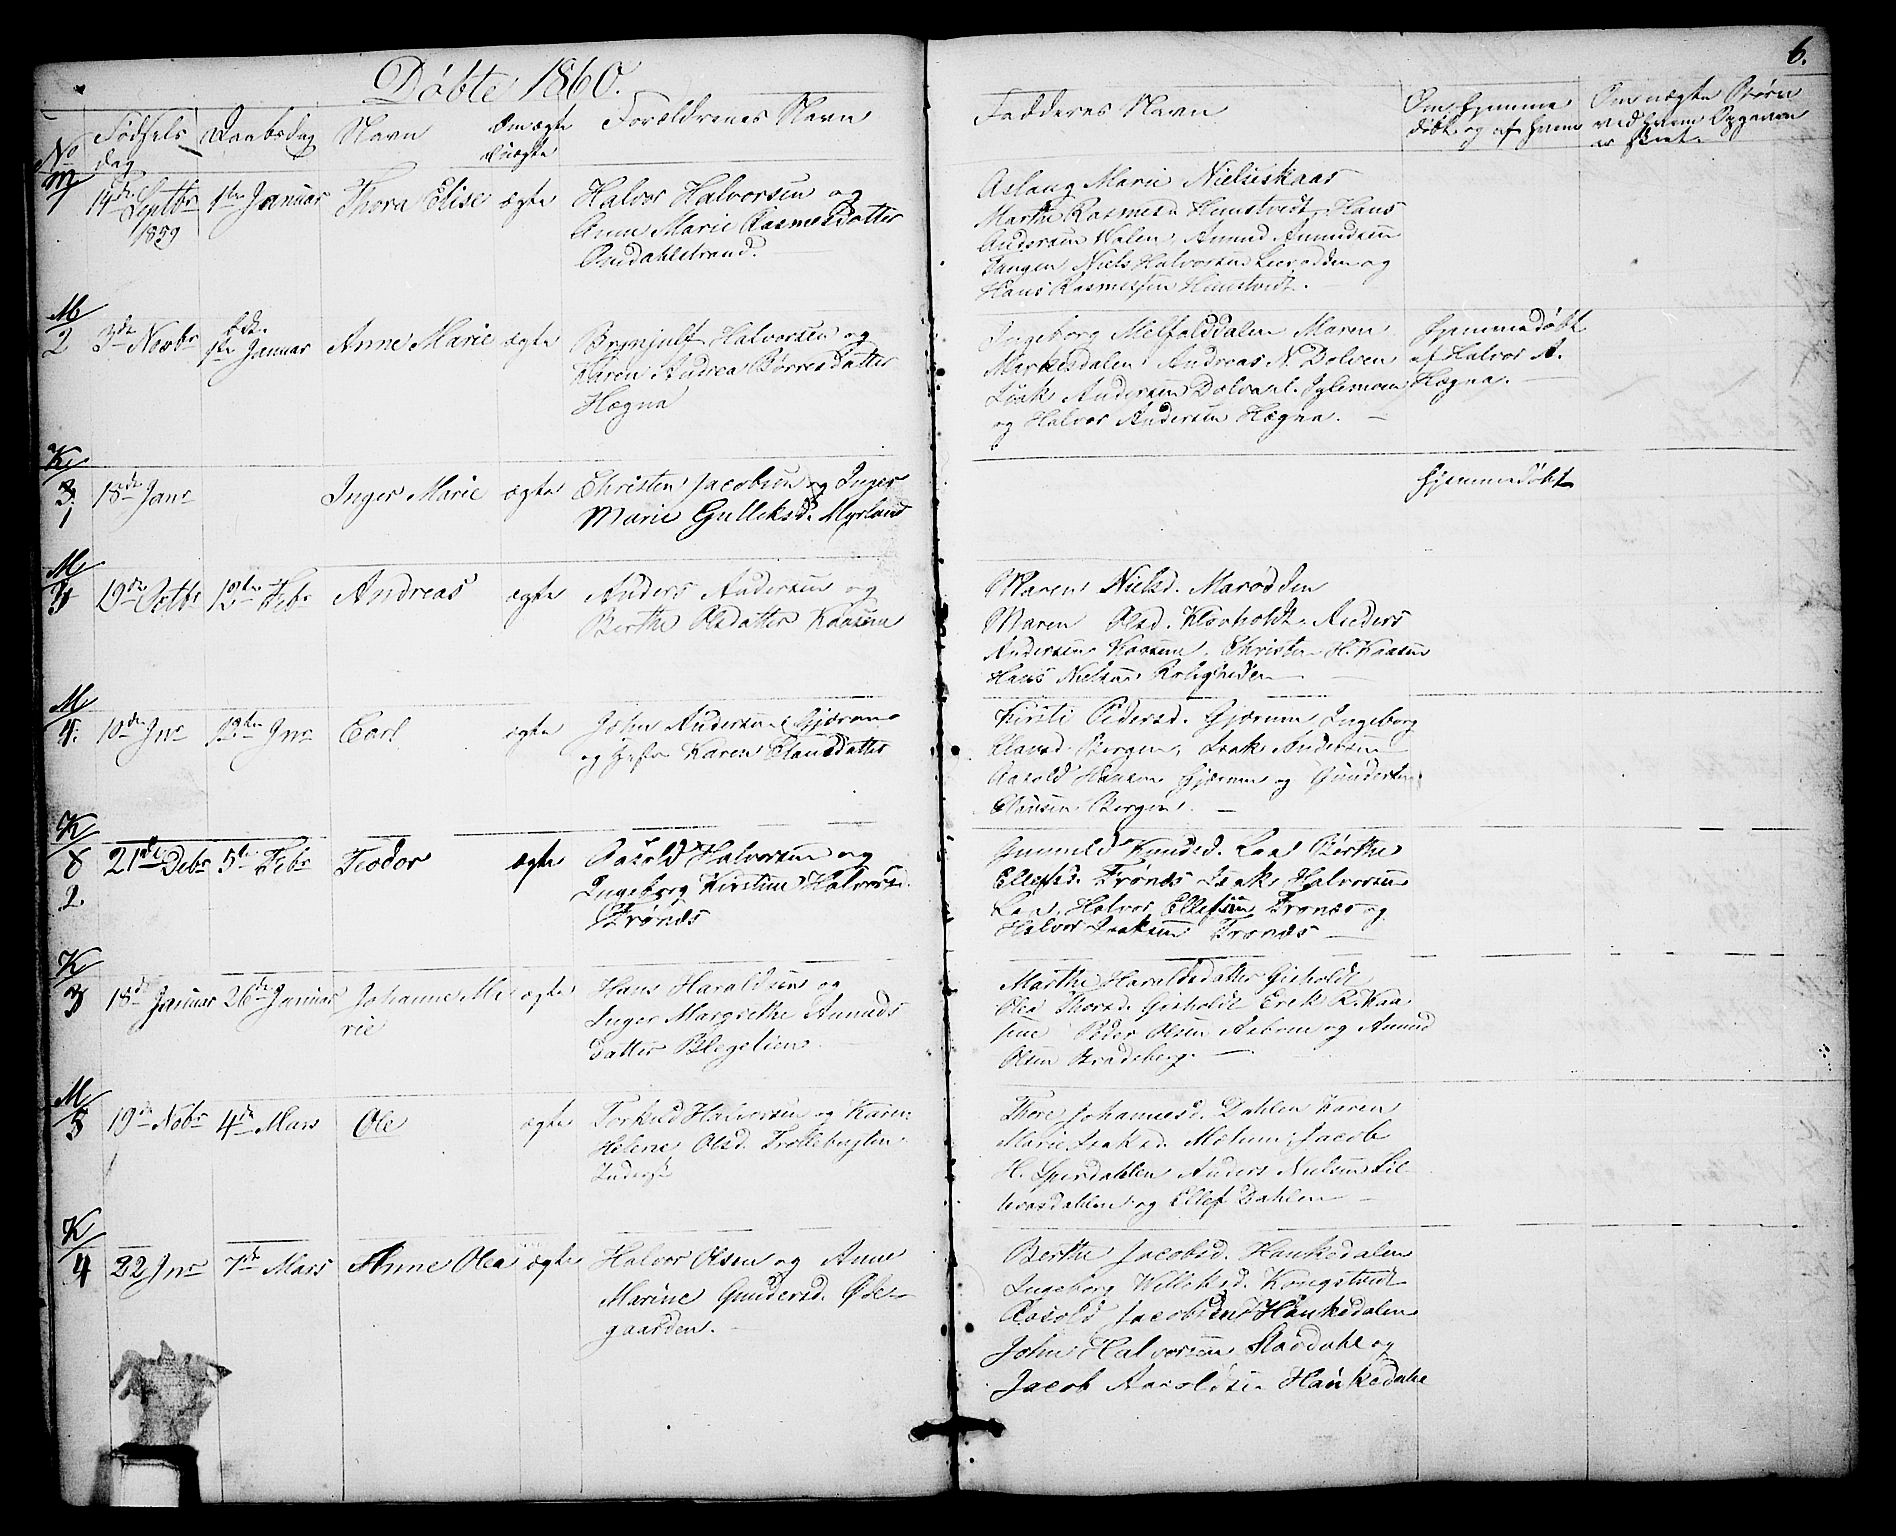 Døbte 1860.
6.
No
Fødsels
dag
Daabsdag
Navn
Om ægte
el uægte
Forældrenes Navn
Fadderes Navn
Om hjemme
døbt og af hvem
Om uægte Børn
ved hvem Opgaven
er skeet.
M
1
14de Septbr
1859
1ste Januar
Thora Elise
ægte
Halvor Halvorsen og
Anne Marie Rasmesdatter
Omdahlstrand.
Aslaug Marie Nielsiskaas
Marthe Rasmesd. Hans
Andersen Walen, Amund Amundsen
Tangen Niels Halvorsen og
Hans Rasmessen
M
2
3de Novbr
1ste Januar
Anne Marie
ægte
Brynjulf Halvorsen og
Karen Andrea Børresdatter
Hægna
Ingeborg Melfalddalen Maren
Andreas N. Dolven
Isak Andersen
og Halvor Andersen Hægna.
Hjemmedøbt
af Halvor A.
Hægna.
K
3
1
18de Janr
Inger Marie
ægte
Christen Jacobsen og Inger
Marie Gulleksd. Myrland
hjemmedøbt
M
3
19de Octbr
12te Febr
Andreas
ægte
Anders Andersen og
Berthe Olsdatter Kaasene
Maren Nielsd. Marødden
Maren Olsd. Klovholdt, Anders
Andersen Kaasene, Christen H. Kaasene
Hans Nielsen Roligheden
M
4.
10de Jnr
12te Jnr
Carl
ægte
John Andersen Gjærum
og Karen Clausdatter
Kirsti Pedersd. Gjærum Ingeborg
Clausd. Bergen, Isak Andersen
Aasold Hansen Gjærum og Gunder
Clausen Bergen.
K
8
2.
21de Debr
5te Febr
Teodor
ægte
Aasold Halvorsen og
Ingeborg Kirstine Halvorsd.
Trønæs
Gunnild Knudsd. Laa Berthe
Ellefsd. Trønæs Isak Halvorsen
Laa, Halvor Ellefsen Trønæs og
Halvor Isaksen Trønæs
K
3
18de Januar
26de Januar
Johanne Ma
rie
ægte
Hans Haraldsen og
Inger Margrethe Amunds
datter Blegelien
Marthe Haraldsdatter Gisholdt
Olea Thorsd. Gisholdt Erek R. Kaa
sene Peder Olsen Aabom og Amund
Olsen Bradsberg.
M
5
19de Nobr
4de Mars
Ole
ægte
Torkild Halvorsen og Karen
Helene Olsd. Trollebugten
Thore Johannesd. Dahlen Karen
Marie Isaksd. Melum, Jacob
H. Speirdahlen Anders Nielsen
og Ellef Dahlen
K
4
22 Jnr
7de Mars
Anne Olea
ægte
Halvor Olsen og Anne
Marine Gundersd. Øde-
gaarden.
Berthe Jacobsd. Haukedalen
Ingeborg
Aasold Jacobsen Haukedalen
John Halvorsen Stordahl og
Jacob Aasoldsen Haukedahl